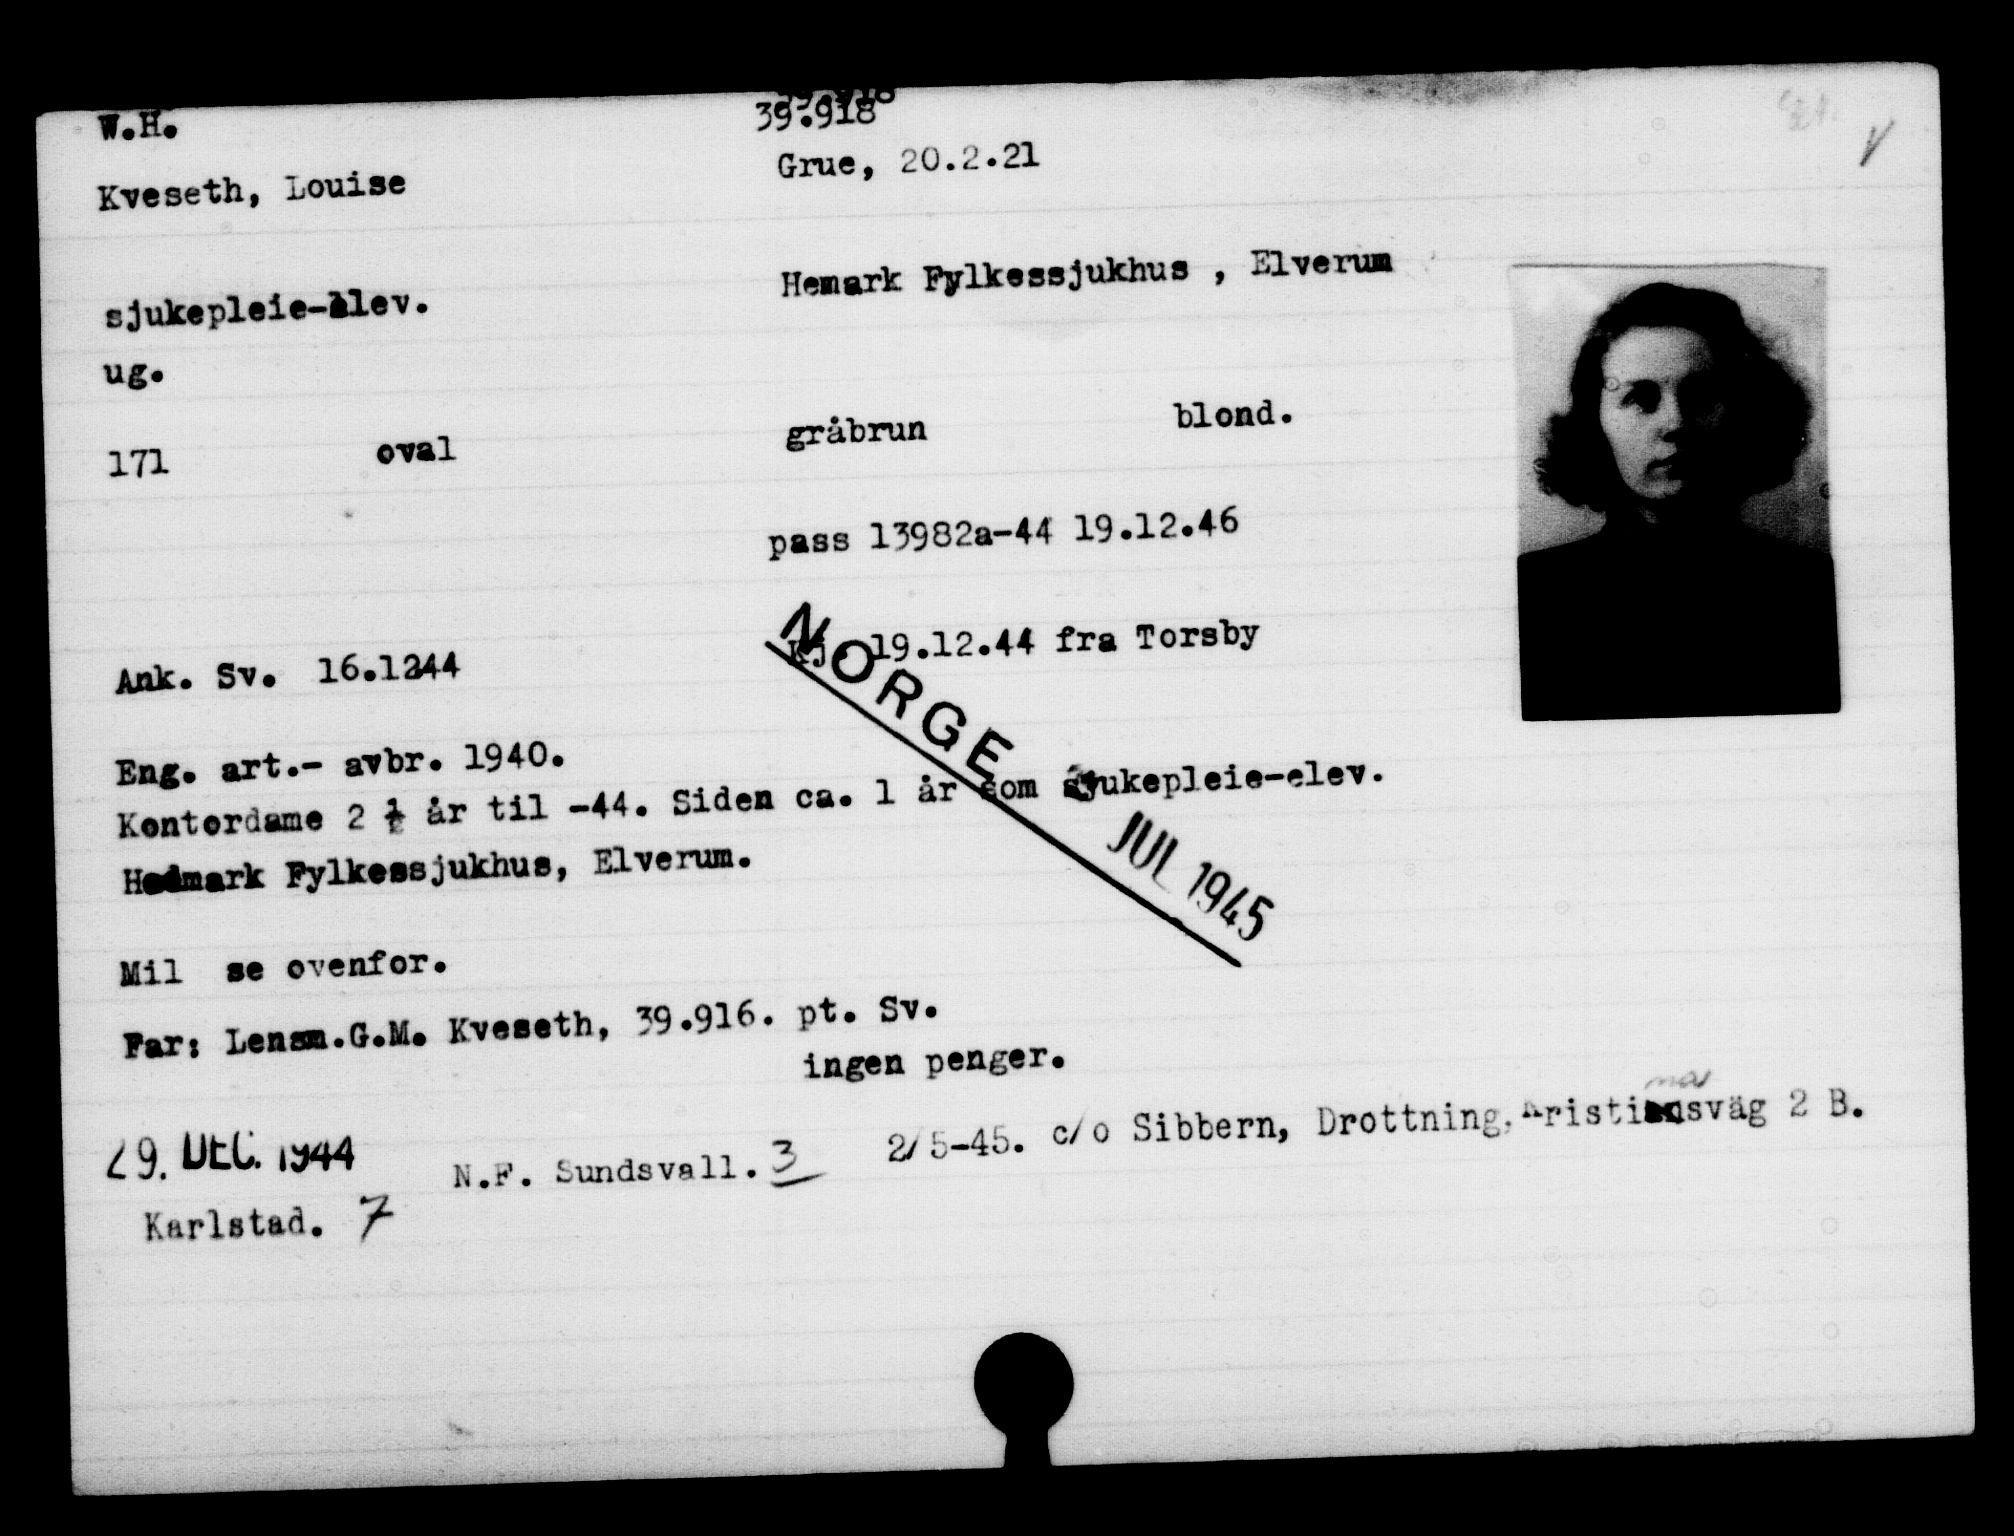 39.918
W.H. 39.918
Kveseth, Louise Grue, 20.2.21
sjukepleie-elev. Hemark Fylkessjukhus , Elverum
ug.
171 oval gråbrun blond.
pass 13982a-44 19.12.46
Ank. Sv. 16.1244 Kj. 19.12.44 fra Torsby
NORGE
Eng. art.- avbr. 1940.
Kontordame 2 ½ år til -44. Siden ca. 1 år som sjukepleie-elev.
Hedmark Fylkessjukhus, Elverum.
JUL 1945
Mil se ovenfor.
Far: Lensm.G.M. Kveseth, 39.916. pt. Sv.
ingen penger.
29. DEC. 1944 N.F. Sundsvall. 3 2/5-45. c/o Sibbern, Drottning. Kristinasväg 2 B.
Karlstad. 7